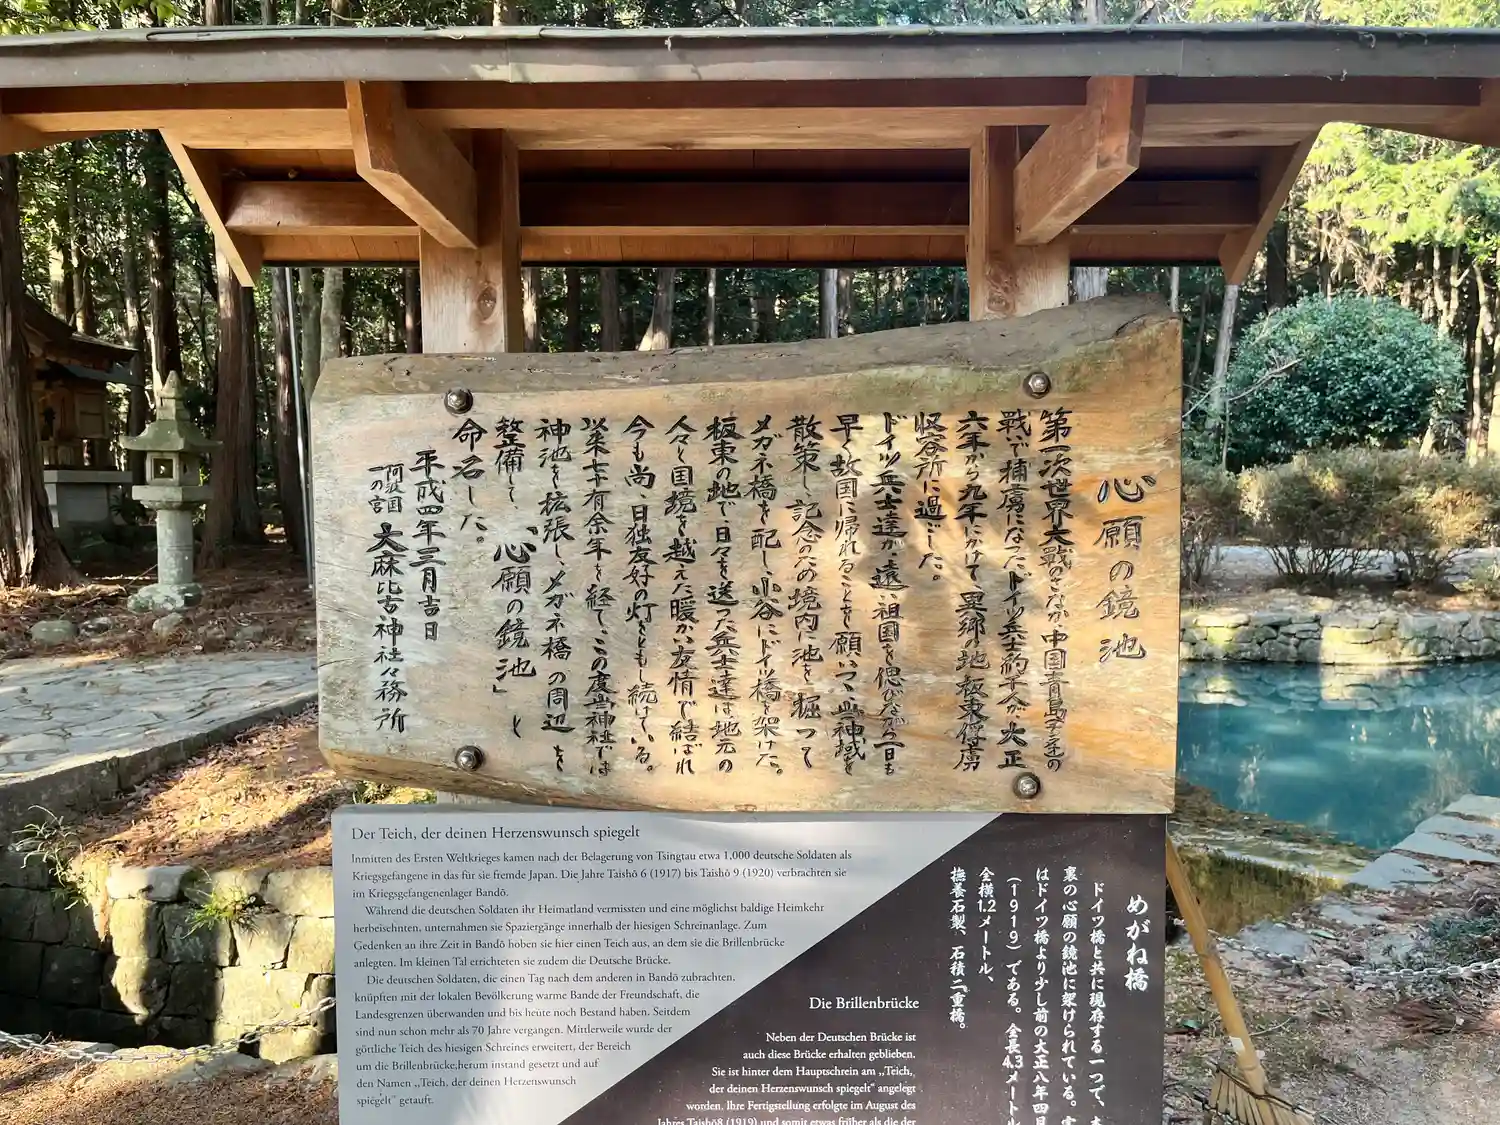 心願の鏡池
第一次世界大戦のさなか、中国青島での
戦いで捕虜になったドイツ兵士約千人が、大正
六年から九年にかけて異郷の地板東俘虜
収容所に過ごした。
ドイツ兵士達が、遠い祖国を偲びながら一日も
早く故国に帰れることを願いつつ、当神域を
散策し、記念のため境内に池を掘って
メガネ橋を配し、小谷にドイツ橋を架けた。
板東の地で、日々を送った兵士達は地元の
人々と国境を越えた暖かい友情で結ばれ
今も尚、日独友好の灯をともし続けている。
以来七十有余年を経て、この度当神社では
神池を拡張し、メガネ橋の周辺を
整備して、「心願の鏡池」と
命名した。
平成四年三月吉日
阿波国
一の宮
大麻比古神社々務所
Der Teich, der deinen Herzenswunsch spiegelt
Inmitten des Ersten Weltkrieges kamen nach der Belagerung von Tsingtau etwa 1,000 deutsche Soldaten als
Kriegsgefangene in das für sie fremde Japan. Die Jahre Taishō 6 (1917) bis Taishō 9 (1920) verbrachten sie
im Kriegsgefangenenlager Bandō.
Während die deutschen Soldaten ihr Heimatland vermissten und eine möglichst baldige Heimkehr
herbeisehnten, unternahmen sie Spaziergänge innerhalb der hiesigen Schreinanlage. Zum
Gedenken an ihre Zeit in Bandō hoben sie hier einen Teich aus, an dem sie die Brillenbrücke
anlegten. Im kleinen Tal errichteten sie zudem die Deutsche Brücke.
Die deutschen Soldaten, die einen Tag nach dem anderen in Bandō zubrachten,
knüpften mit der lokalen Bevölkerung warme Bande der Freundschaft, die
Landesgrenzen überwanden und bis heute noch Bestand haben. Seitdem
sind nun schon mehr als 70 Jahre vergangen. Mittlerweile wurde der
göttliche Teich des hiesigen Schreines erweitert, der Bereich
um die Brillenbrücke,herum instand gesetzt und auf
den Namen „Teich, der deinen Herzenswunsch
spiegelt" getauft.
めがね橋
ドイツ橋と共に現存する一つで、本
裏の心願の鏡池に架けられている。
はドイツ橋より少し前の大正八年四月
(1919)である。全長4.3メートル
全横1.2メートル、
撫養石製、石積二重橋。
Die Brillenbrücke
Neben der Deutschen Brücke ist
auch diese Brücke erhalten geblieben.
Sie ist hinter dem Hauptschrein am „Teich,
der deinen Herzenswunsch spiegelt" angelegt
worden. Ihre Fertigstellung erfolgte im August des
Jahres Taishō8 (1919) und somit etwas früher als die der